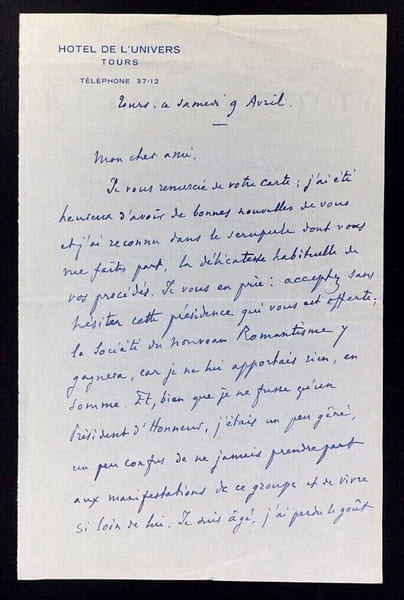 HOTEL DE L'UNIVERS
TOURS
TÉLÉPHONE 37-12
Tours. ce samedi 9 Avril.
Mon cher ami,
Je vous remercie de votre carte ; j'ai été
heureux d'avoir de bonnes nouvelles de vous
et j'ai reconnu dans le scrupule dont vous
me faites part, la délicatesse habituelle de
vos procédés. Je vous en prie : acceptez sans
hésiter cette présidence qui vous est offerte ;
la Société du Nouveau Romantisme y
gagnera, car je ne lui apportais rien, en
somme. Et, bien que je ne fusse qu'un
Président d'Honneur, j'étais un peu gêné,
un peu confus de ne jamais prendre part
aux manifestations de ce groupe et de vivre
si loin de lui. Je suis âgé, j'ai perdu le goût